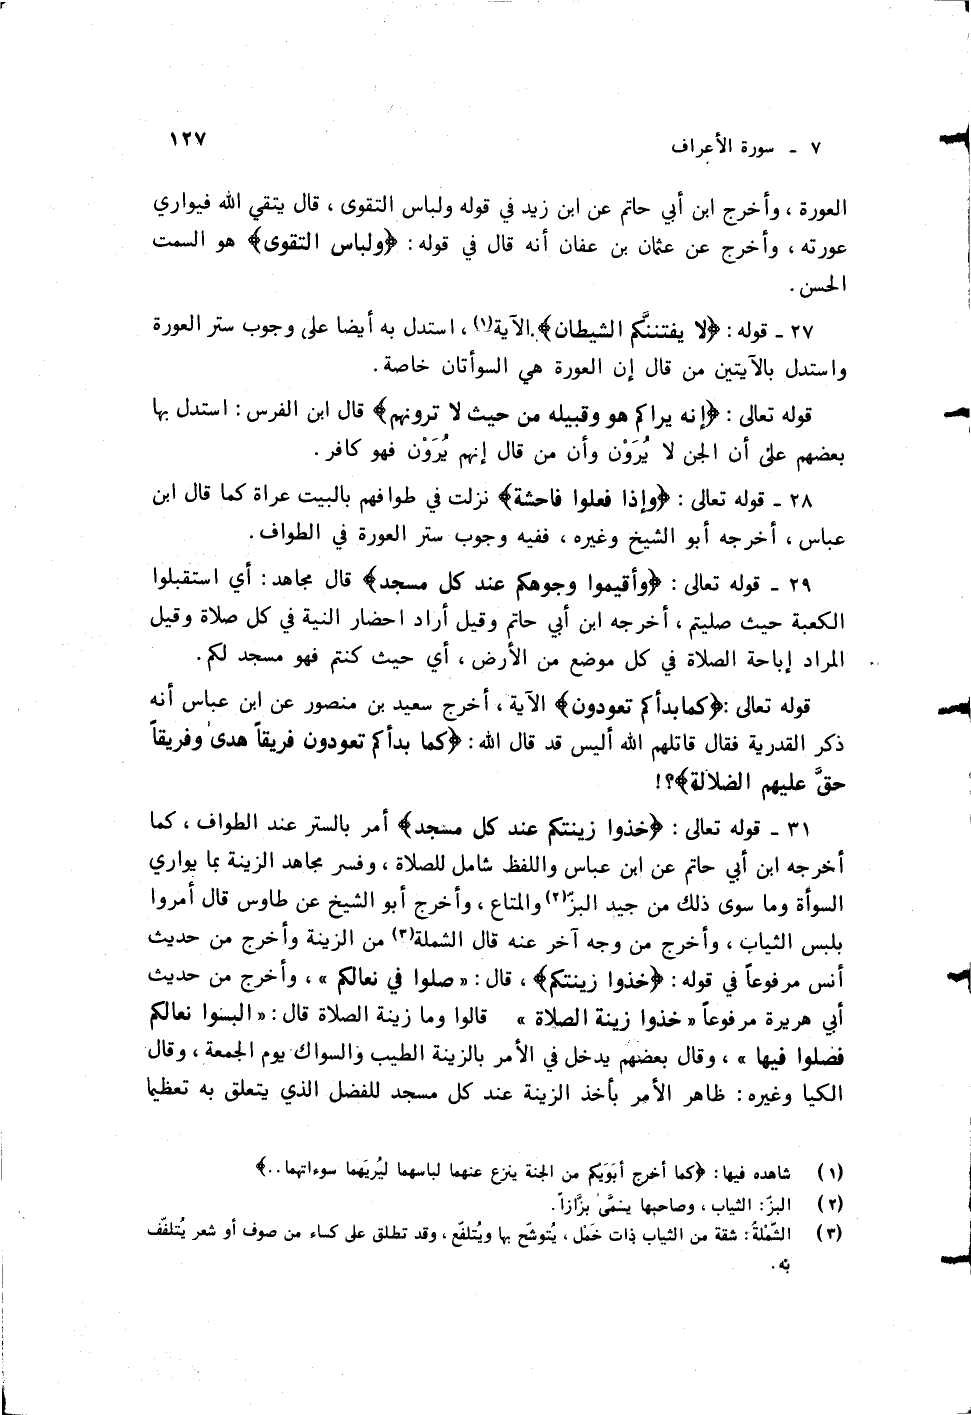 ٧ ـ سورة الأعراف ١٢٧
العورة ، وأخرج ابن أبي حاتم عن ابن زيد في قوله ولباس التقوى ، قال يتقي الله فيواري
عورته ، وأخرج عن عثمان بن عفان أنه قال في قوله : ﴿ولباس التقوى﴾ هو السمت
الحسن .
٢٧ ـ قوله : ﴿لا يفتننَّكم الشيطان﴾ الآية(١) ، استدل به أيضا على وجوب ستر العورة
واستدل بالآيتين من قال إن العورة هي السوأتان خاصة .
قوله تعالى : ﴿إنه يراكم هو وقبيله من حيث لا ترونهم﴾ قال ابن الفرس : استدل بها
بعضهم على أن الجن لا يُرَوْن وأن من قال إنهم يُرَوْن فهو كافر .
٢٨ ـ قوله تعالى : ﴿وإذا فعلوا فاحشة﴾ نزلت في طوافهم بالبيت عراة كما قال ابن
عباس ، أخرجه أبو الشيخ وغيره ، ففيه وجوب ستر العورة في الطواف .
٢٩ ـ قوله تعالى : ﴿وأقيموا وجوهكم عند كل مسجد﴾ قال مجاهد : أي استقبلوا
الكعبة حيث صليتم ، أخرجه ابن أبي حاتم وقيل أراد احضار النية في كل صلاة وقيل
المراد إباحة الصلاة في كل موضع من الأرض ، أي حيث كنتم فهو مسجد لكم .
قوله تعالى :﴿كما بدأكم تعودون﴾ الآية ، أخرج سعيد بن منصور عن ابن عباس أنه
ذكر القدرية فقال قاتلهم الله أليس قد قال الله : ﴿كما بدأكم تعودون فريقاً هدى وفريقاً
حقَّ عليهم الضلالة﴾؟!
٣١ ـ قوله تعالى : ﴿خذوا زينتكم عند كل مسجد﴾ أمر بالستر عند الطواف ، كما
أخرجه ابن أبي حاتم عن ابن عباس واللفظ شامل للصلاة ، وفسر مجاهد الزينة بما يواري
السوأة وما سوى ذلك من جيد البزّ(٢) والمتاع ، وأخرج أبو الشيخ عن طاوس قال أمروا
بلبس الثياب ، وأخرج من وجه آخر عنه قال الشملة(٣) من الزينة وأخرج من حديث
أنس مرفوعاً في قوله : ﴿خذوا زينتكم﴾ ، قال : « صلوا في نعالكم » ، وأخرج من حديث
أبي هريرة مرفوعاً « خذوا زينة الصلاة » قالوا وما زينة الصلاة قال : « البسوا نعالكم
فصلوا فيها » ، وقال بعضهم يدخل في الأمر بالزينة الطيب والسواك يوم الجمعة ، وقال
الكيا وغيره : ظاهر الأمر بأخذ الزينة عند كل مسجد للفضل الذي يتعلق به تعظيما
(١) شاهده فيها : ﴿كما أخرج أبَوَيكم من الجنة ينزع عنهما لباسهما ليُريَهما سوءاتهما . .﴾
(٢) البزّ : الثياب ، وصاحبها ينمَّى بزَّازاً .
(٣) الشّمْلةَ : شقة من الثياب ذات خَمْل ، يُتوشّح بها ويُتلفّع ، وقد تطلق على كساء من صوف أو شعر يُتلفّف
به .